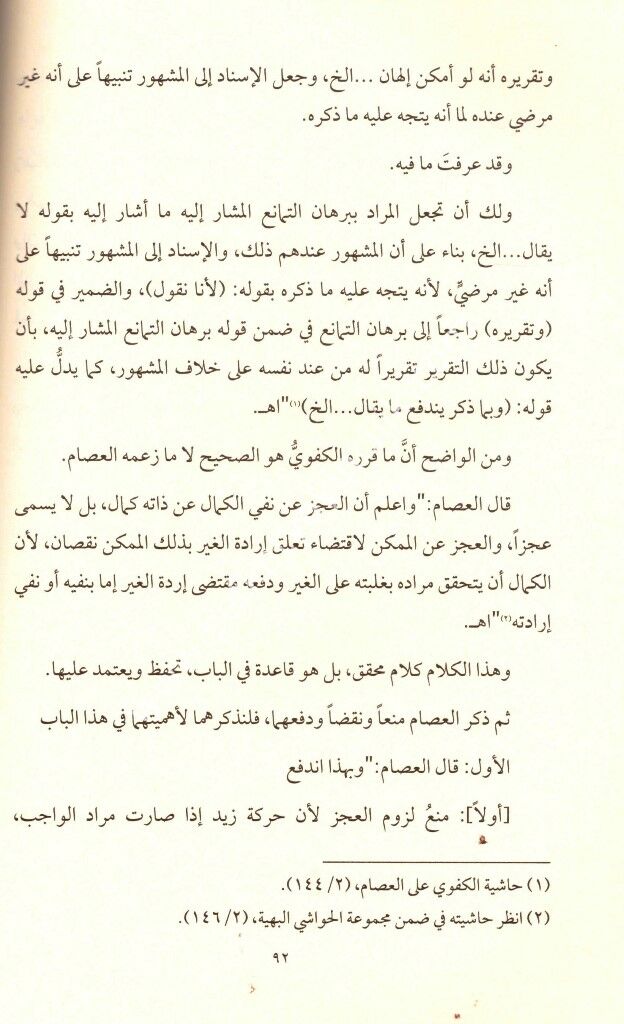 وتقريره أنه لو أمكن إلهان ...الخ، وجعل الإسناد إلى المشهور تنبيهاً على أنه غير
مرضي عنده لما أنه يتجه عليه ما ذكره.
وقد عرفتَ ما فيه.
ولك أن تجعل المراد ببرهان التمانع المشار إليه ما أشار إليه بقوله لا
يقال...الخ، بناء على أن المشهور عندهم ذلك، والإسناد إلى المشهور تنبيهاً على
أنه غير مرضيٍّ، لأنه يتجه عليه ما ذكره بقوله: (لأنا نقول)، والضمير في قوله
(وتقريره) راجعاً إلى برهان التمانع في ضمن قوله برهان التمانع المشار إليه، بأن
يكون ذلك التقرير تقريراً له من عند نفسه على خلاف المشهور، كما يدلُّ عليه
قوله: (وبما ذكر يندفع ما يقال...الخ)(١)"اهـ.
ومن الواضح أنَّ ما قرره الكفويُّ هو الصحيح لا ما زعمه العصام.
قال العصام:"واعلم أن العجز عن نفي الكمال عن ذاته كمال، بل لا يسمى
عجزاً، والعجز عن الممكن لاقتضاء تعلق إرادة الغير بذلك الممكن نقصان، لأن
الكمال أن يتحقق مراده بغلبته على الغير ودفعه مقتضى إردة الغير إما بنفيه أو نفي
إرادته(٢)"اهـ.
وهذا الكلام كلام محقق، بل هو قاعدة في الباب، تحفظ ويعتمد عليها.
ثم ذكر العصام منعاً ونقضاً ودفعهما، فلنذكرهما لأهميتهما في هذا الباب
الأول: قال العصام:"وبهذا اندفع
[أولاً]: منعُ لزوم العجز لأن حركة زيد إذا صارت مراد الواجب،
(١) حاشية الكفوي على العصام، (٢/ ١٤٤).
(٢) انظر حاشيته في ضمن مجموعة الحواشي البهية، (٢/ ١٤٦).
٩٢